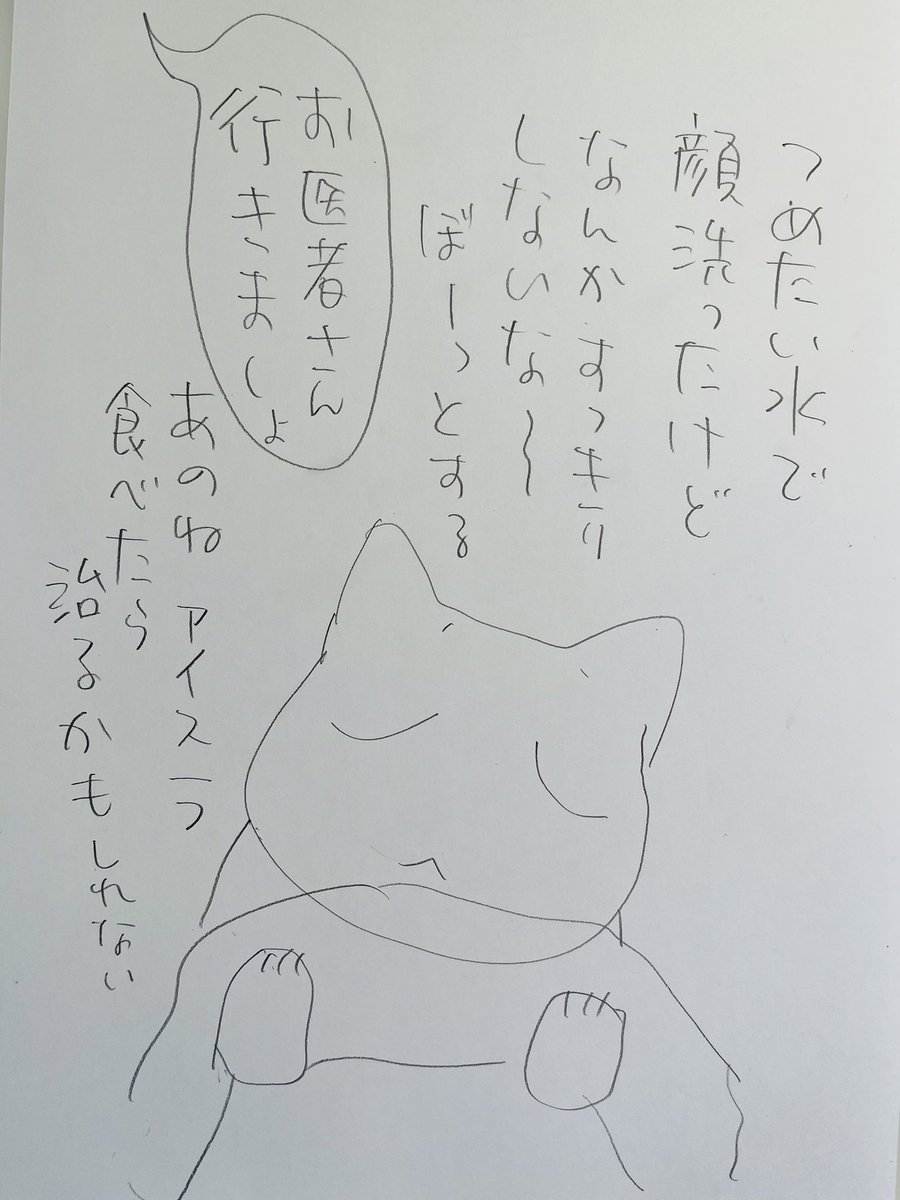 つめたい水で
顔洗ったけど
なんかすっきり
しないな〜
ぼーっとする
お医者さん
行きましょ
あのね アイス一つ
食べたら
治るかもしれない